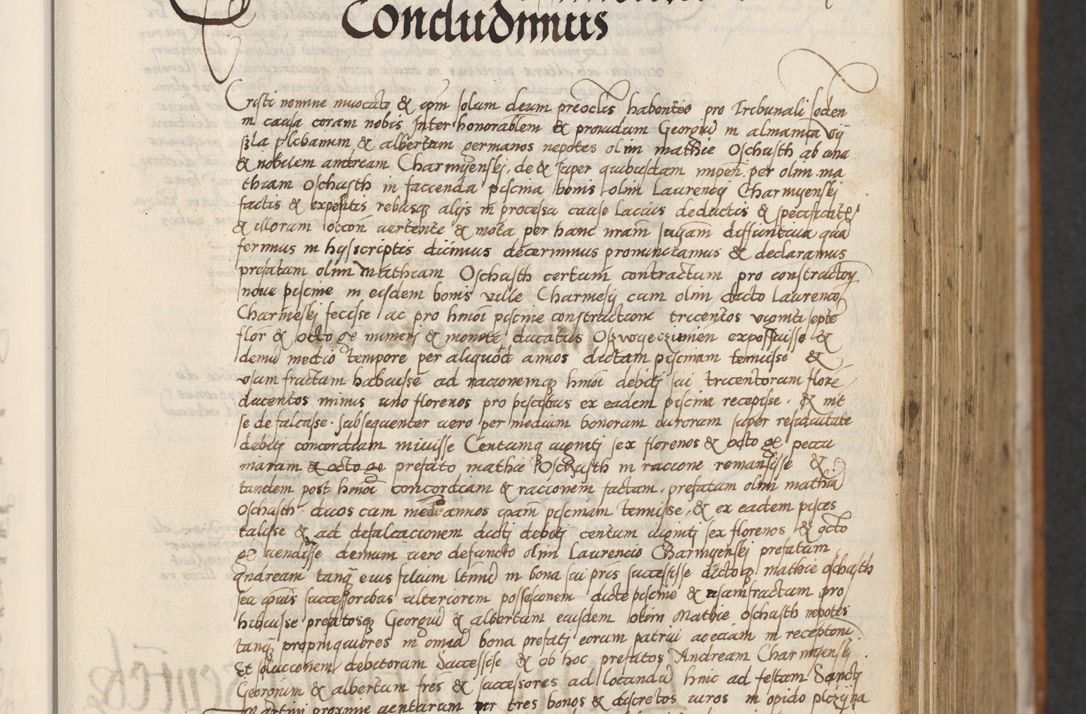 Concludimus
Cristi nomine invocato & ipm solum deum pre oclis habentes pro Tribunali seden
in causa coram nobis Inter honorabilem & providum Georgiū in almanica
plebanum & albertum germanos nepotes olim mathie Oschasth ab una
& nobilem andream Charmyenskj, de & super quibusdam impen. per olim ma
thiam Oschasth in facienda piscina bonis olim Laurencij Charmyenskj
factis & expositis rebusq alijs in processu cause lacius deductis & specificatis
& illorum occōn vertente & mota per hanc nram diffinitivā quā
ferimus in hijs scriptis dicimus decernimus pronunctiamus & declaramus
prefatum olim Mathiam Oschasth certum contractum pro constructōē
nove piscine in eisdem bonis ville Charmesij cum olim dicto Laurencō
Charmeskj fecisse / ac pro hmōi piscine constructione tricentos viginti septē
flor & octo gr numeri & monete ducatus Oswyeczimien exposuisse &
demū medio tempore per aliquod annos dictam piscinam tenuisse &
usum fructum habuisse ad racionemq hmōi debitj sui tricentorum flore
ducentos minus uno florenos pro piscibus ex eadem piscina recepisse. & int
se defalcasse. subsequenter vero per medium bonorum virorum super residuitate
debitj concordiam inivisse Centumq vigintj sex florenos & octo gr peccu
niarum & octo gr prefato mathie Oschasth in racione remansisse &
tandem post hmōi concordiam & racionem factam. prefatum olim mathiā
Oschasth duos cum medio annos ipsam piscinam tenuisse. & ex eadem pisces
& ad defalcacionem dictj debitj centum vigintj sex florenos & octo
gr vendisse demum vero defuncto olim Laurencio Charmyenskj prefatum
Andream tanq̄ eius filium in bona sui pris successisse dictoq mathie oschasth
seu ipius successoribus ulteriorem possessionem dicte piscine & usumfructum pro
hibuisse prefatosq Georgiū & albertum eiusdem olim Mathie oschasth nepotes
tanq propinquiores in omnia bona prefatj eorum patrui in receptōnē
Et solucionem debitorum Successisse & ob hoc prefatos Andream Charmyenskj
Georgium & albertum frēs & successores ad locandū hinc ad festum Sanctj
Martini proxime venturum per tres bonos & discretos viros in opido